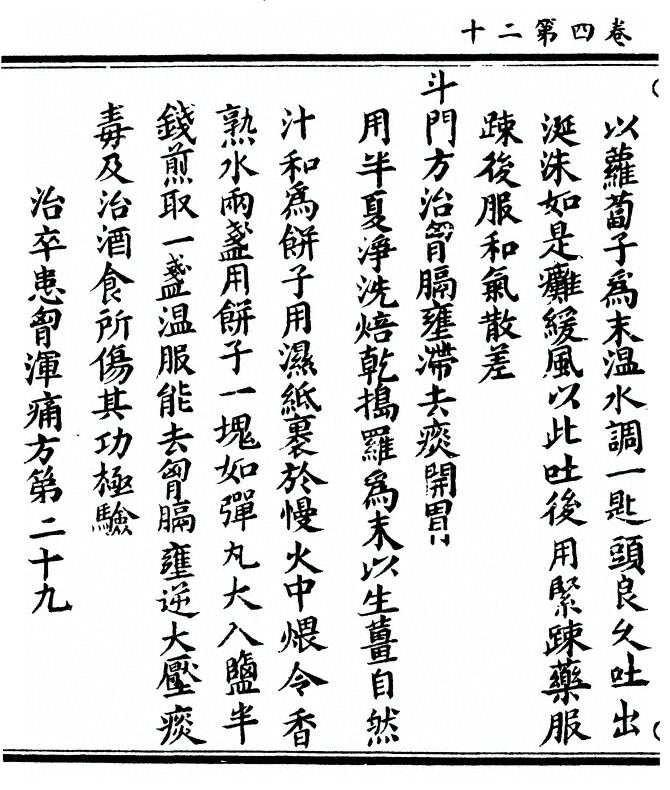 卷四第二十
以蘿蔔子爲末温水調一匙頭良久吐出
涎沫如是癱緩風以此吐後用緊踈藥服
踈後服和氣散差
斗門方治胷膈壅滯去痰開胃
用半夏淨洗焙乾搗羅爲末以生薑自然
汁和爲餅子用濕紙裹於慢火中煨令香
熟水兩盞用餅子一塊如彈丸大入鹽半
錢煎取一盞温服能去胷膈壅逆大壓痰
毒及治酒食所傷其功極驗
治卒患胷渾痛方第二十九